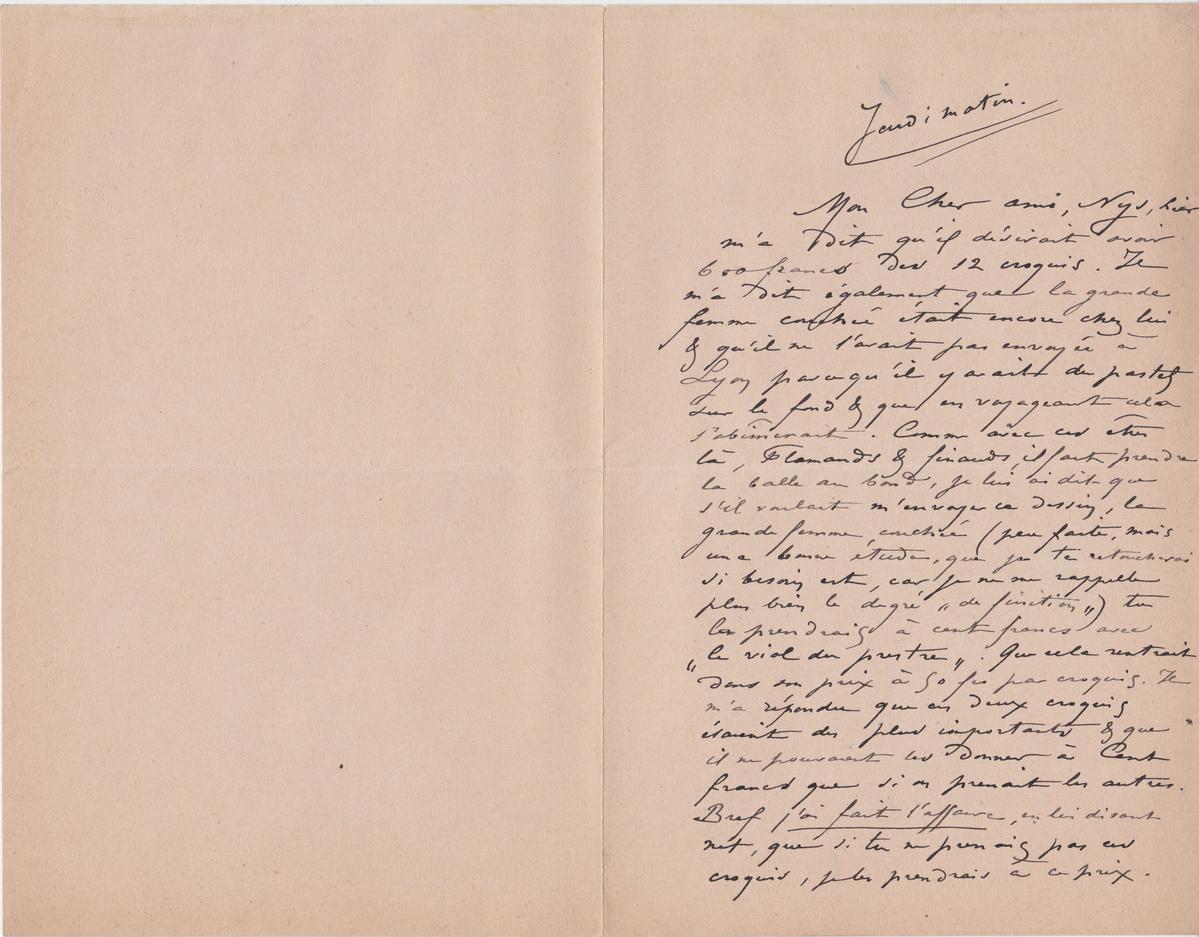 Jeudi matin.
Mon Cher ami, Nys, hier
m'a dit qu'il désirait avoir
600 francs des 12 croquis. Il
m'a dit également que la grande
femme couchée était encore chez lui
& qu'il ne l'avait pas envoyée à
Lyon parcequ'il y avait du pastel
sur le fond & que en voyageant cela
s'abimerait. Comme avec ces êtres
là, Flamands & finauds, il faut prendre
la balle au bond, je lui ai dit que
s'il voulait m'envoyer ce dessin, la
grande femme couchée (peu faite, mais
une bonne étude, que je te retoucherai
si besoin est, car je ne me rappelle
plus bien le degré „de finition„) tu
les prendrais à cent francs avec
„le viol du prestre„. Que cela rentrait
dans son prix à 50 frs par croquis. Il
m'a répondu que ces deux croquis
étaient des plus importants & que
il ne pouvait les donner à Cent
francs que si on prenait les autres.
Bref j'ai fait l'affaire, en lui disant
net, que si tu ne prenais pas ces
croquis, je les prendrais à ce prix.